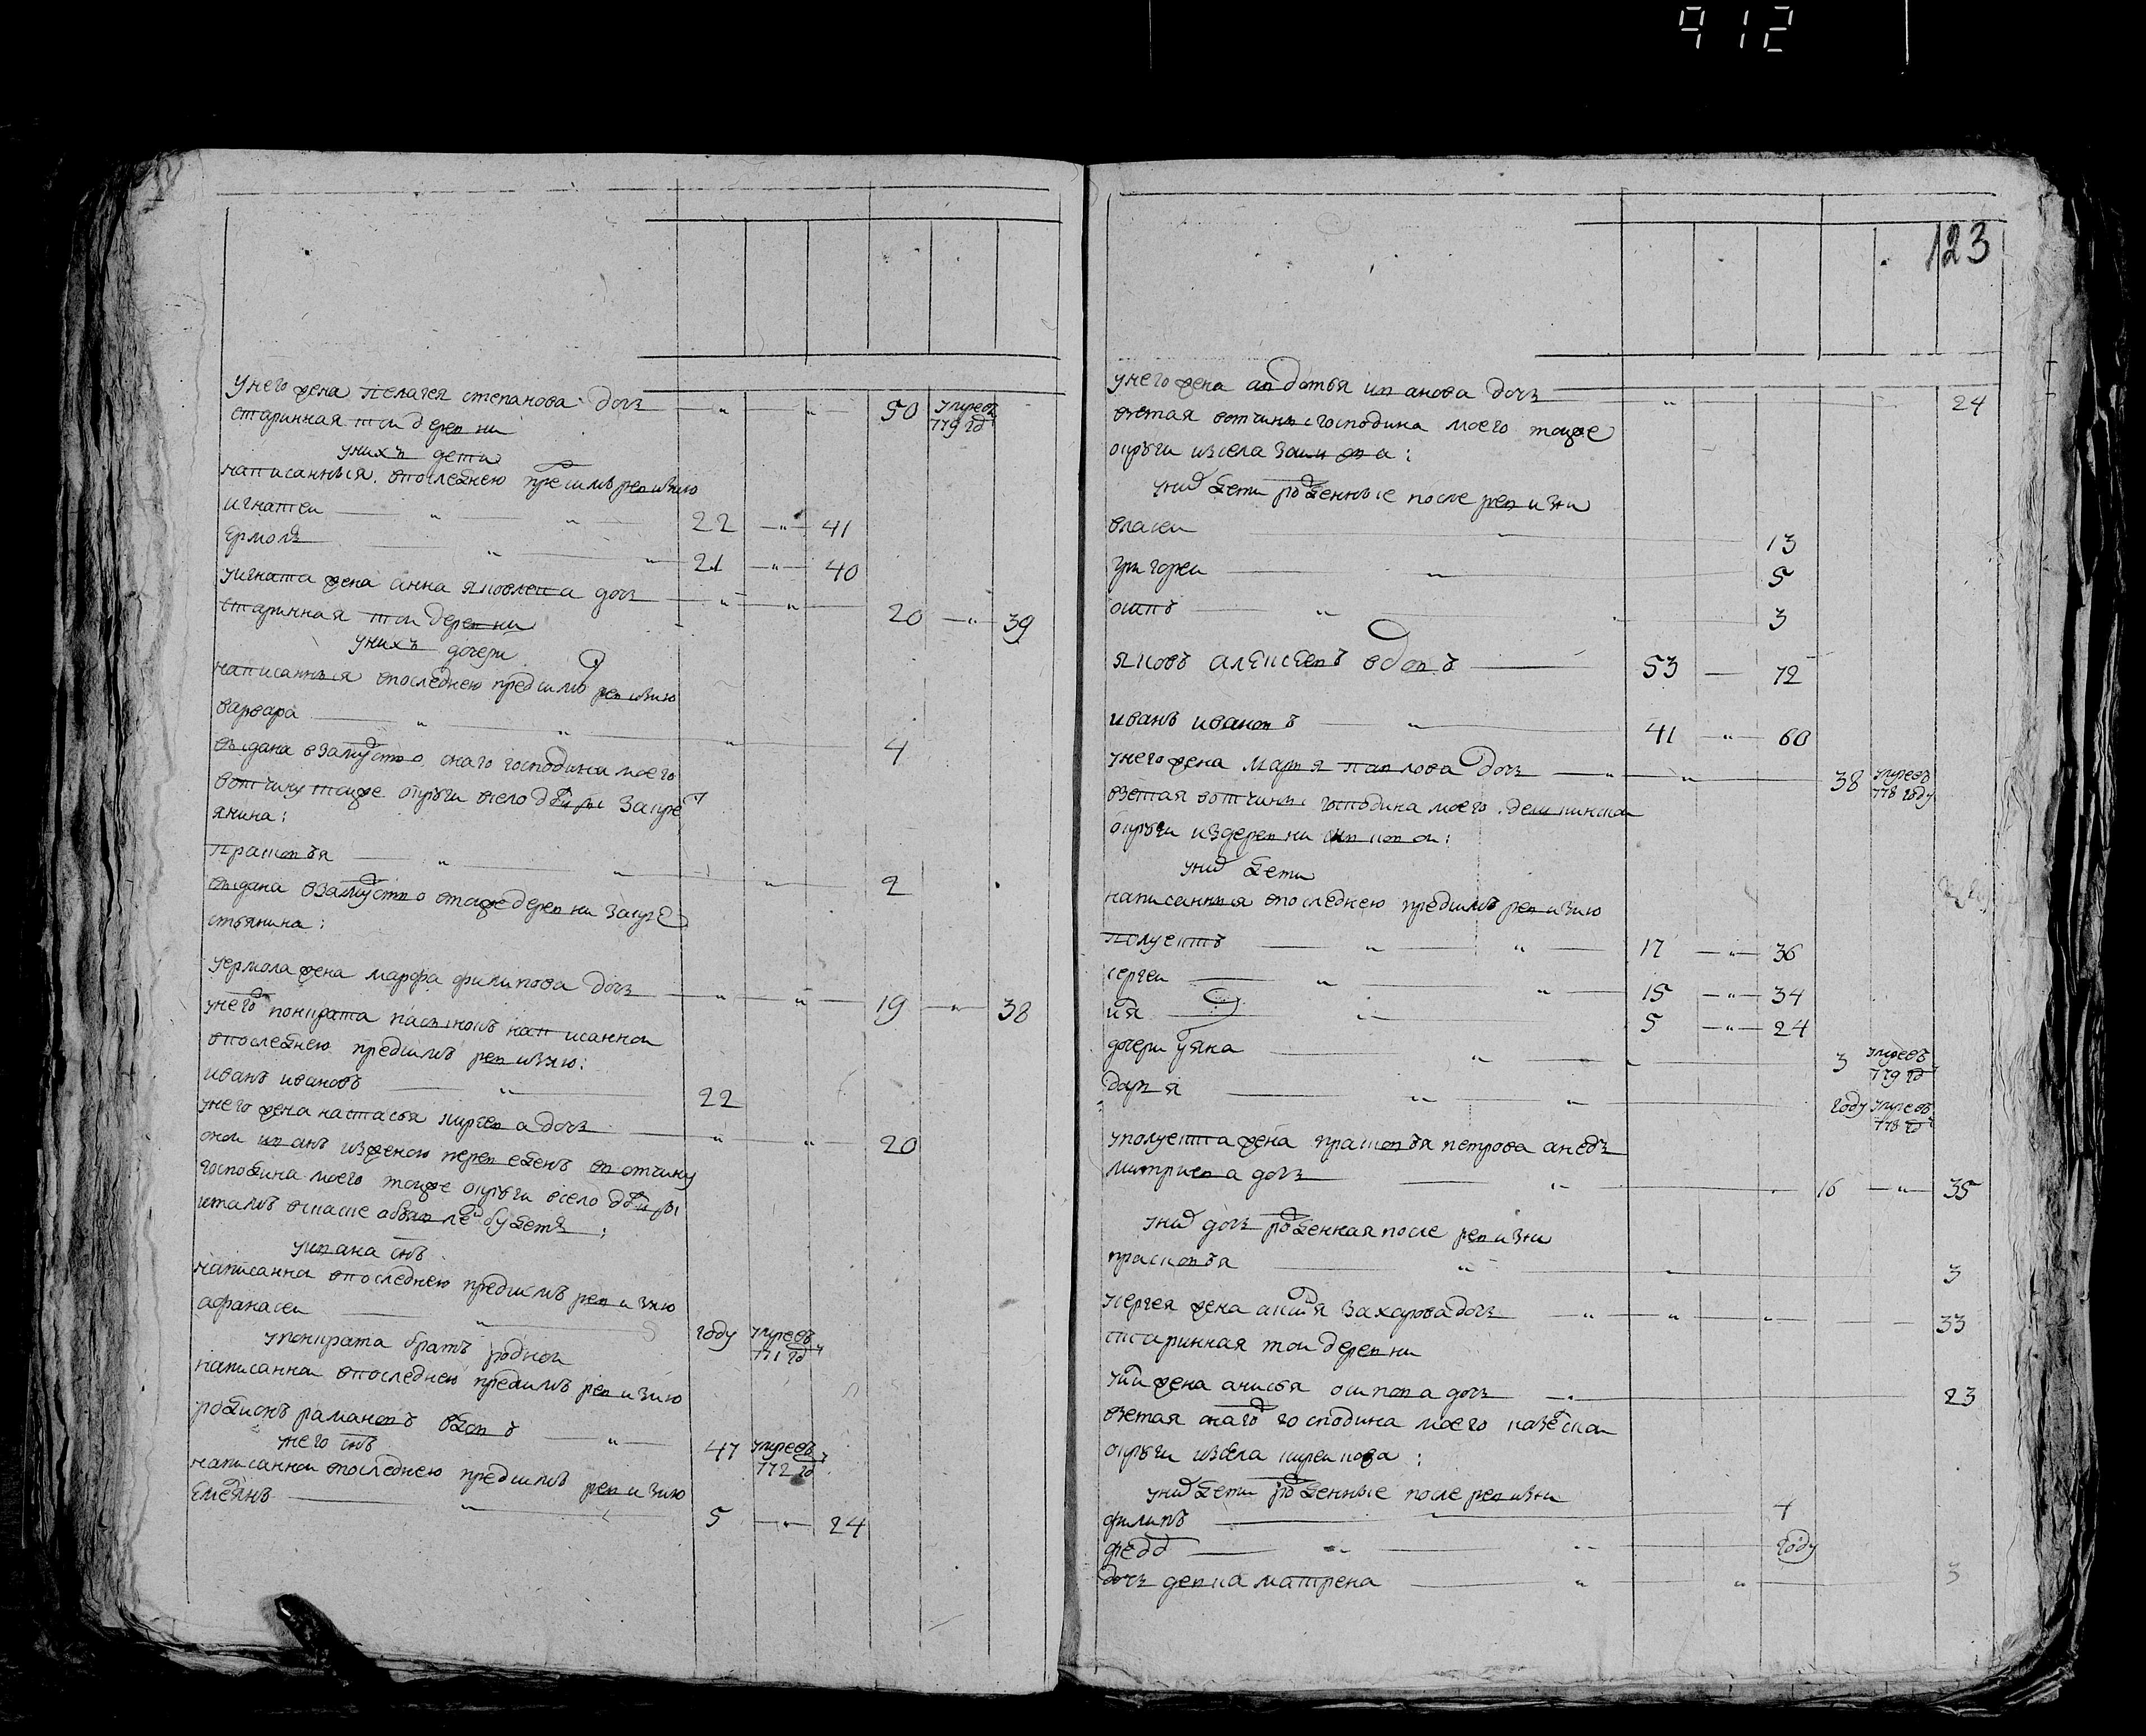 912
У него жена пелагея степанова дочь — 50 умре въ 779 год
старинная той деревни
у нихъ дети
написанныя в последнею пред симъ ревизию
игнатеи — 22 — 41
ермолъ — 21 — 40
у игната жена анна яковлева дочь — 20 — 39
старинная той деревни
у нихъ дочери
написанныя в последнею пред симъ ревизию
варвара — 4
выдана в замужство онаго господина моего
вотчину тоже округи в село
янина:
прасковья — 2
выдана в замужство в тоже деревни за кре
стьянина:
у ермола жена марфа филипова дочь — 19 — 38
у него понкрата пасынокъ написанной
в последнею пред симъ ревизию:
иванъ ивановъ — 22
у него жена настасья киреева дочь — 20
оной иванъ из женою переведенъ в вотчину
господина моего тоже округи в село
и тамъ в сказке обявлен будетъ:
у ивана снъ
написанной в последнею пред симъ ревизию
афанасеи — году умре въ 771 год
у понкрата братъ родной
написанной в последнею пред симъ ревизию
родионъ рамановъ вдовъ — 47 умре въ 772 год
у него снъ
написанной в последнею пред симъ ревизию
емелянъ — 5 — 24
123
у него жена авдотья иванова дочь — 24
взетая вотчины господина моего тоже
округи из села
у них дети рожденные после ревизии
власеи — 13
григореи — 5
осипъ — 3
яковъ алексеевъ вдовъ — 53 — 72
иванъ ивановъ — 41 — 60
у него жена марья павлова дочь — 38 умре въ 778 году
взетая вотчины господина моего
округи из деревни
у них дети
написанныя в последнею пред симъ ревизию
полуектъ — 17 — 36
сергеи — 15 — 34
илья — 5 — 24
дочери ульяна — 3 умре въ 779 год
дарья — году умре въ 778 год
у полуекта жена прасковья петрова
митриева дочь — 16 — 35
у них дочь рожденная после ревизии
прасковья — 3
у сергея жена аксинья захарова дочь — 33
старинная той деревни
у ильи жена анисья осипова дочь — 23
взетая онаго господина моего
округи из села
у них дети рожденные после ревизии
филипъ — 4
федор — году
дочь девка матрена — 3